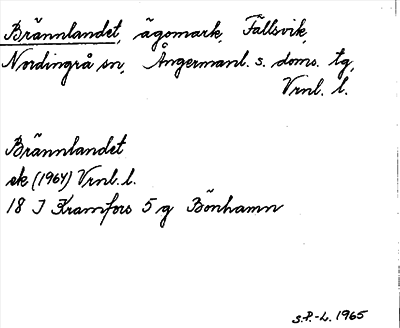 Brännlandet, ägomark, Fällsvik,
Nordingrå sn, Ångermanl. s. doms. tg,
Vrnl. l.
Brännlandet
ek (1964) Vrnl. l.
18 I Kramfors 5 g Bönhamn
S.P.-L. 1965